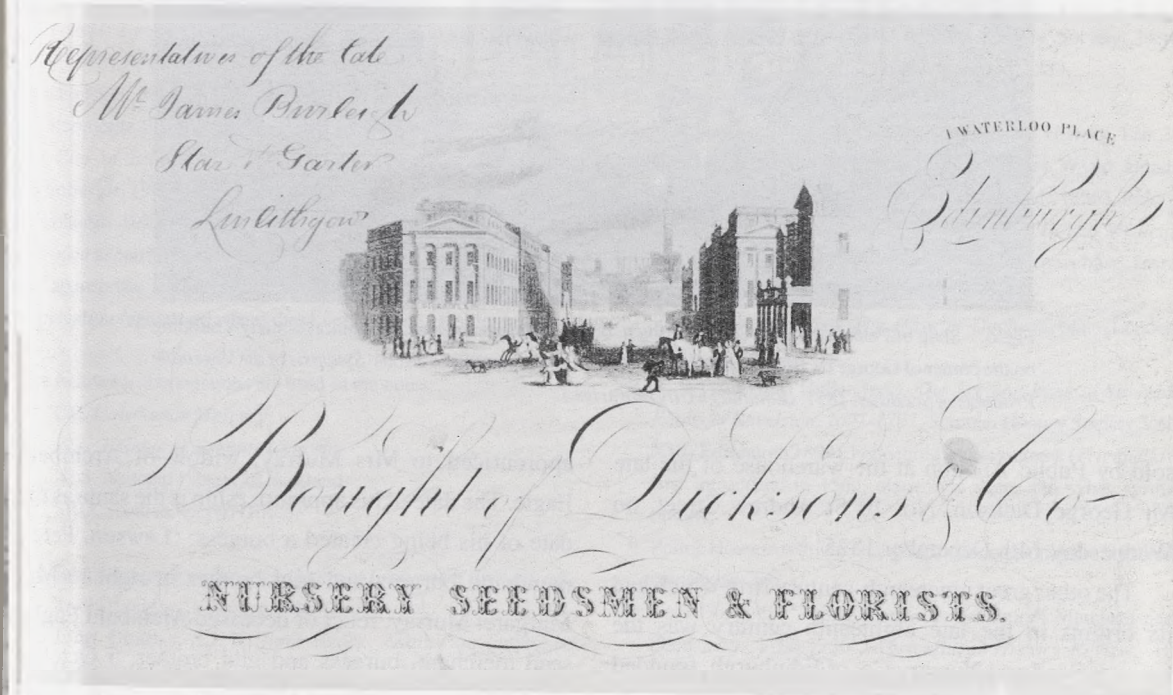 Representatives of the late
Mr James Burleigh
Star & Garter
Linlithgow
1 WATERLOO PLACE
Edinburgh
Bought of Dicksons & Co
NURSERY SEEDSMEN & FLORISTS.